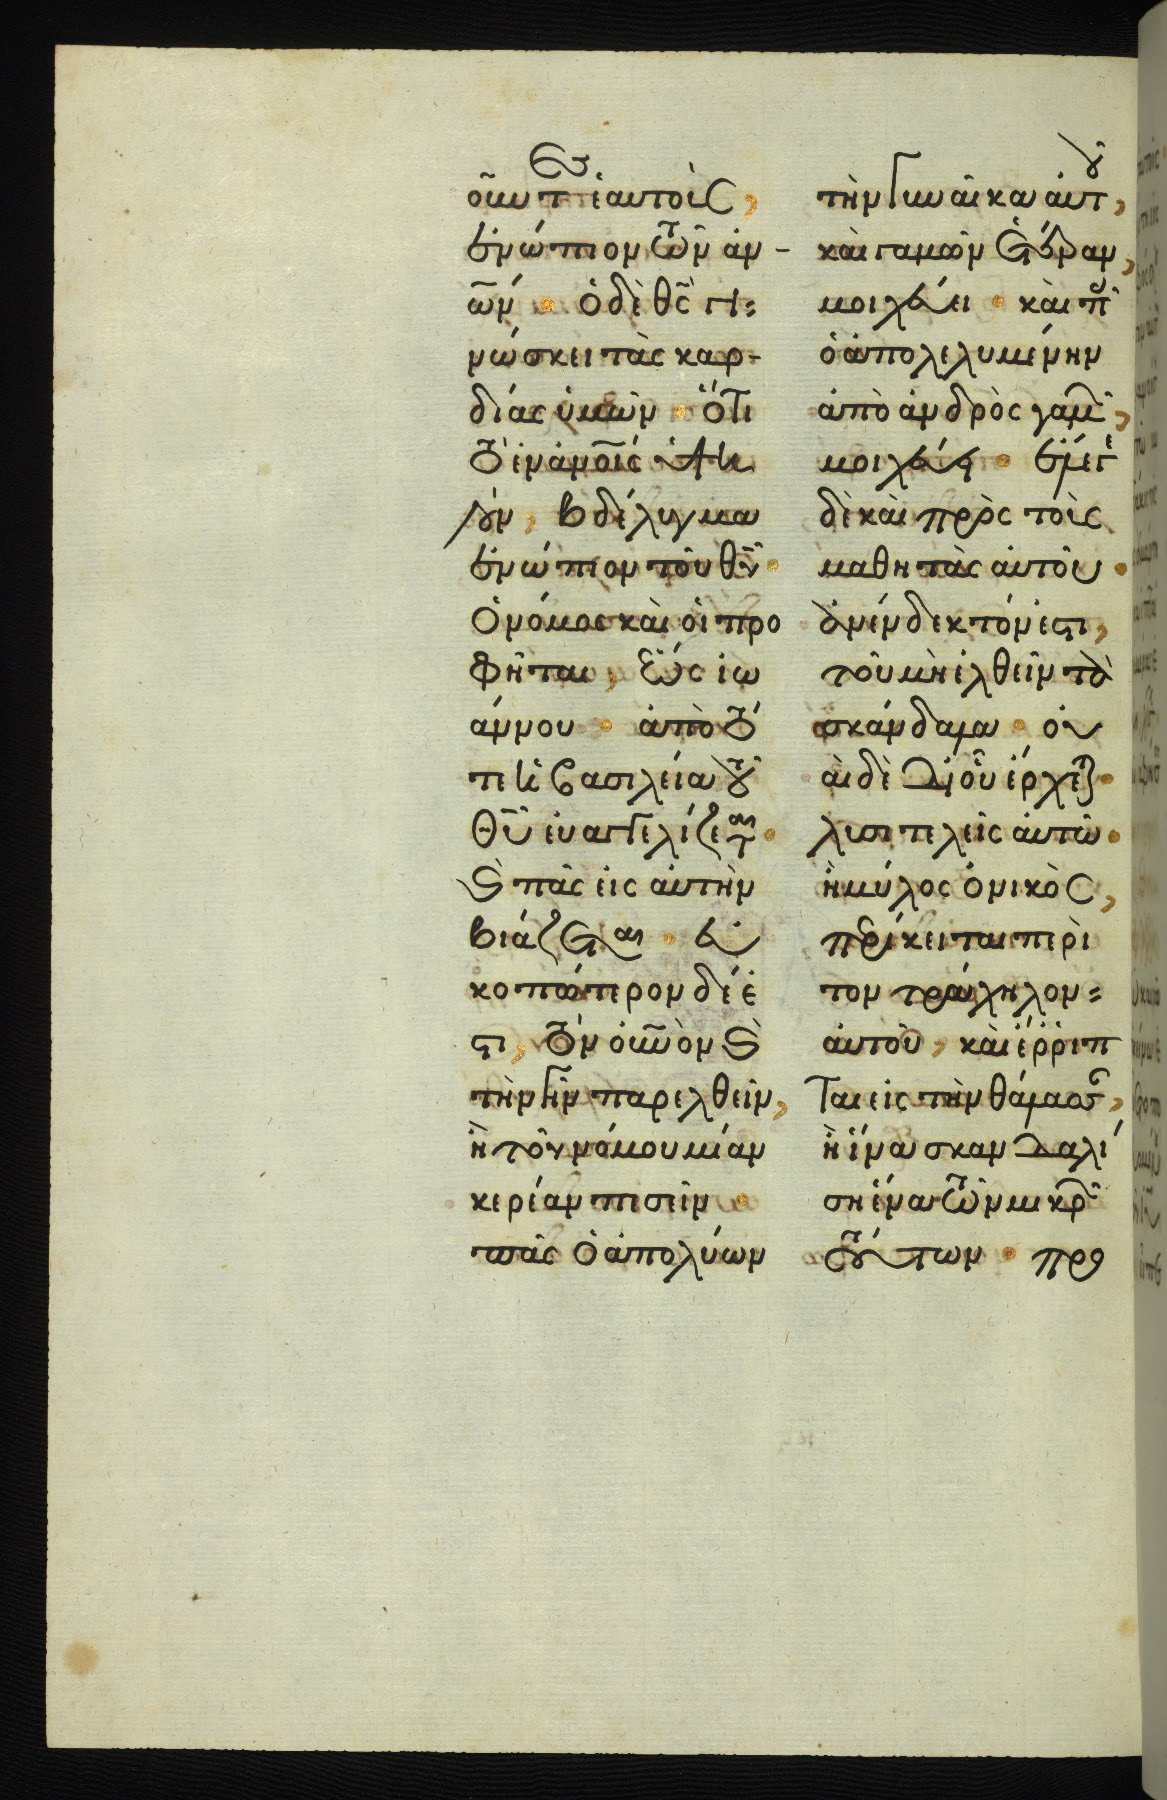 οῦντες ἑαυτοὺς,
ἐνώπιον τῶν ἀν-
ων· ὁ δὲ θς γι=
νώσκει τὰς καρ-
δίας ὑμῶν· ὅτι
τὸ ἐν ἀνοις ὑψη
λὸν, βδέλυγμα
ἐνώπιον τοῦ θυ·
Ὁ νόμος καὶ οἱ προ
φῆται, ἕως ἰω
άννου· ἀπὸ τό
τε ἡ βασιλεία τοῦ
θυ εὐαγγελίζεται·
καὶ πᾶς εἰς αὐτὴν
βιάζεται· εὐ
κοπώτερον δέ ἐ
στι, τὸν οὐνον καὶ
τὴν γῆν παρελθεῖν,
ἢ τοῦ νόμου μίαν
κερέαν πεσεῖν·
πᾶς ὁ ἀπολύων
τὴν γυναῖκα αὐτοῦ,
καὶ γαμῶν ἑτέραν,
μοιχεύει· καὶ πᾶς
ὁ ἀπολελυμένην
ἀπὸ ἀνδρὸς γαμῶν,
μοιχεύει· εἶπε
δὲ καὶ πρὸς τοὺς
μαθητὰς αὐτοῦ·
ἀνένδεκτόν ἐστι,
τοῦ μὴ ἐλθεῖν τὰ
σκάνδαλα· οὐ
αὶ δὲ δι' οὗ ἔρχεται·
λυσιτελεῖς αὐτῶ·
ἢ μύλος ὀνικὸς,
περίκειται περὶ
τον τράχηλον=
αὐτοῦ, καὶ ἔρριπ
ται εἰς τὴν θάλασσαν,
ἢ ἵνα σκανδαλί
ση ἕνα τῶν μικρῶν
τούτων· προ